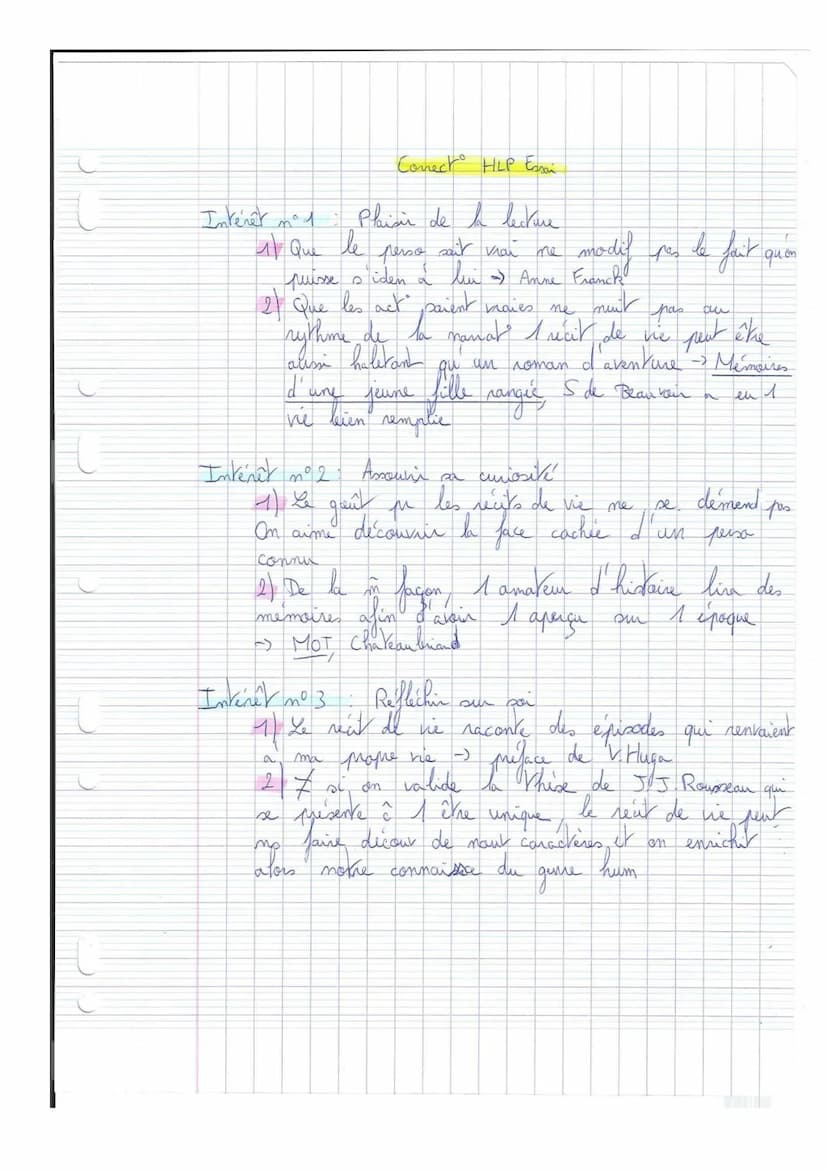 Correct° HLP Essai
Intérêt n°1 : Plaisir de la lecture
1) Que le perso soit vrai ne modif pas le fait qu'on
puisse s'iden à lui → Anne Franck
2) Que les act° soient vraies ne nuit pas au
rythme de la narrat° 1 récit de vie peut être
aussi haletant qu'un roman d'aventure → Mémoires
d'une jeune fille rangée, S de Beauvoir a eu 1
vie bien remplie
Intérêt n°2 : Assouvir sa curiosité
1) Le goût pr les récits de vie ne se démend pas
On aime découvrir la face cachée d'un perso
connu
2) De la m̄ façon, 1 amateur d'histoire lira des
mémoires afin d'avoir 1 aperçu sur 1 époque
→ MOT, Chateaubriand
Intérêt n°3 : Réfléchir sur soi
1) Le récit de vie raconte des épisodes qui renvoient
à ma propre vie → préface de V.Hugo
2) ≠ si on valide la thèse de J.J.Rousseau qui
se présente ĉ 1 être unique, le récit de vie peut
ns faire découv de nouv caractères, et on enrichit
alors notre connaissce du genre hum